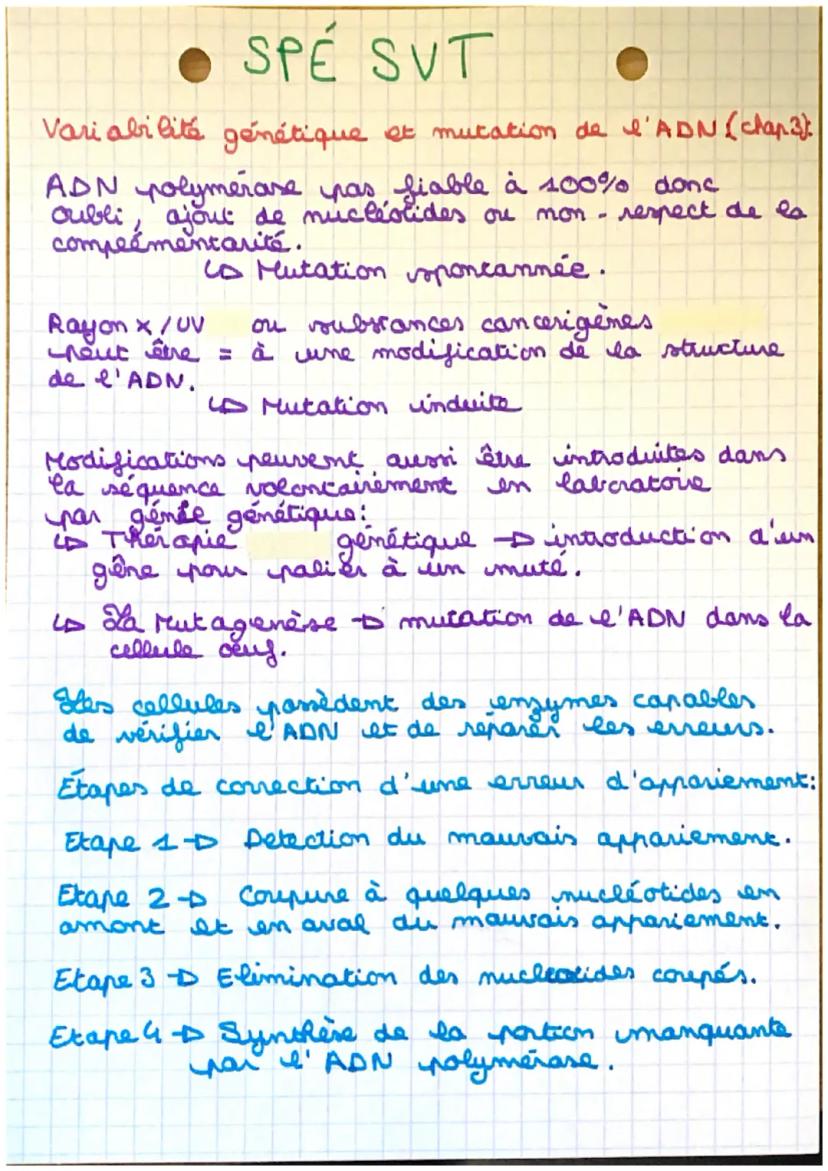 SPÉ SVT
Variabilité génétique et mutation de l'ADN (chap 3):
ADN polymérase pas fiable à 100% donc
oubli, ajout de nucléotides ou non-respect de la
complémentarité.
↳ Mutation spontannée.
Rayon X/UV ou substances cancerigènes
peut être = à une modification de la structure
de l'ADN.
↳ Mutation induite
Modifications peuvent aussi être introduites dans
la séquence volontairement en laboratoire
par génie génétique:
↳ Thérapie génétique → introduction d'un
gêne pour palier à un muté.
↳ La Mutagenèse → mutation de l'ADN dans la
cellule œuf.
Les cellules possèdent des enzymes capables
de vérifier l'ADN et de réparer les erreurs.
Étapes de correction d'une erreur d'appariement:
Etape 1 → Detection du mauvais appariement.
Etape 2 → Coupure à quelques nucléotides en
amont et en aval du mauvais appariement.
Etape 3 → Elimination des nucleotides coupés.
Etape 4 → Synthèse de la portion manquante
par l'ADN polymérase.